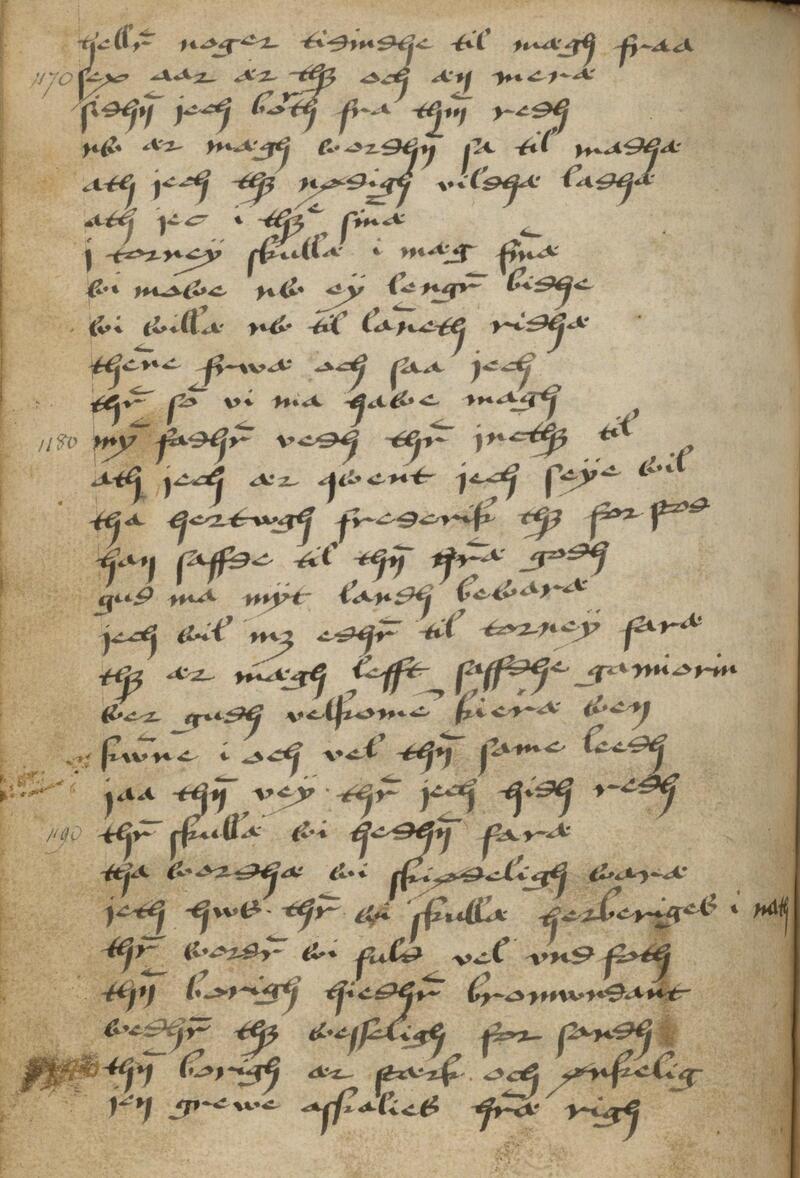 hellr̄ noger tidindhe til mægh fraa
1170 sex aar ær thꝫ och æn meræ
sidhn̄ jech borth fra thn̄ redh
nw ær mægh wordhn̄ sa til madhæ
ath jech thꝫ nødigh vildhæ ladhæ
ath jec i thꝫe sīnæ
j torney skullæ i mæg fīnæ
wi mowe nw ey lengr̄ bidhe
wi willæ nw til lāneth ridhæ
thēne frwæ och saa jech
thr̄ sō vi ma hawe magh
1180 mȳ fadhr̄ vedh thr̄ jnthꝫ til
ath jech ær qwent jech seye wil
tha hertwgh frederik thꝫ forstod
han saffde til thn̄ hr̄æ godh
gud ma myt landh bewaræ
jech wil mꝫ edhr̄ til torney faræ
thꝫ ær mægh lefft saffdhe gamiorin
wer gudh velkomē kieræ wen
kwn̄e i och vel thn̄ same leedh
jaa thn̄ vey thr̄ jech hidh redh
1190 thr̄ skullæ wi hedhn̄ faræ
tha wordhæ wi skiødeligh waræ
jeth hws thr̄ wi skullæ herberiges i nath
thr̄ wordr̄ wi fuld vel vnd foth
thn̄ borigh hiedhr̄ bromwndant
wedhr̄ thꝫ wesseligh for sandh
thn̄ borigh ær stærk och ønkelig
jen grewe affkalies hr̄æ righ